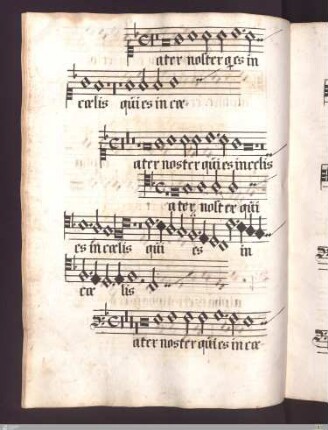 ater noster q es in
cœlis qui es in cœ
ater noster qui es in celis
ater noster qui
es in cœlis qui es in
cœ lis
ater noster qui es in cœ